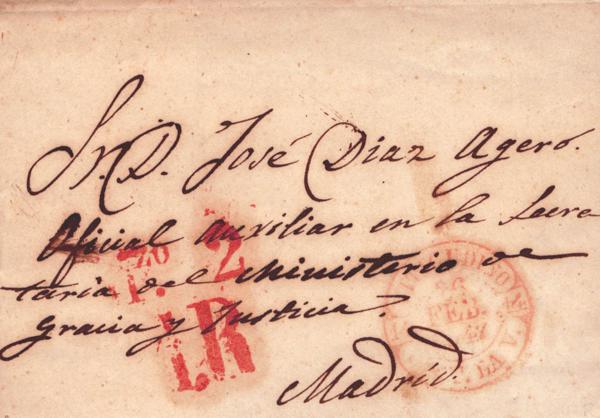 Sr. D. José Diaz Agero.
Oficial Auxiliar en la Secre
taria del Ministerio de
Gracia y Justicia.
Madrid.
1R
26
FEB.
47
LA V.